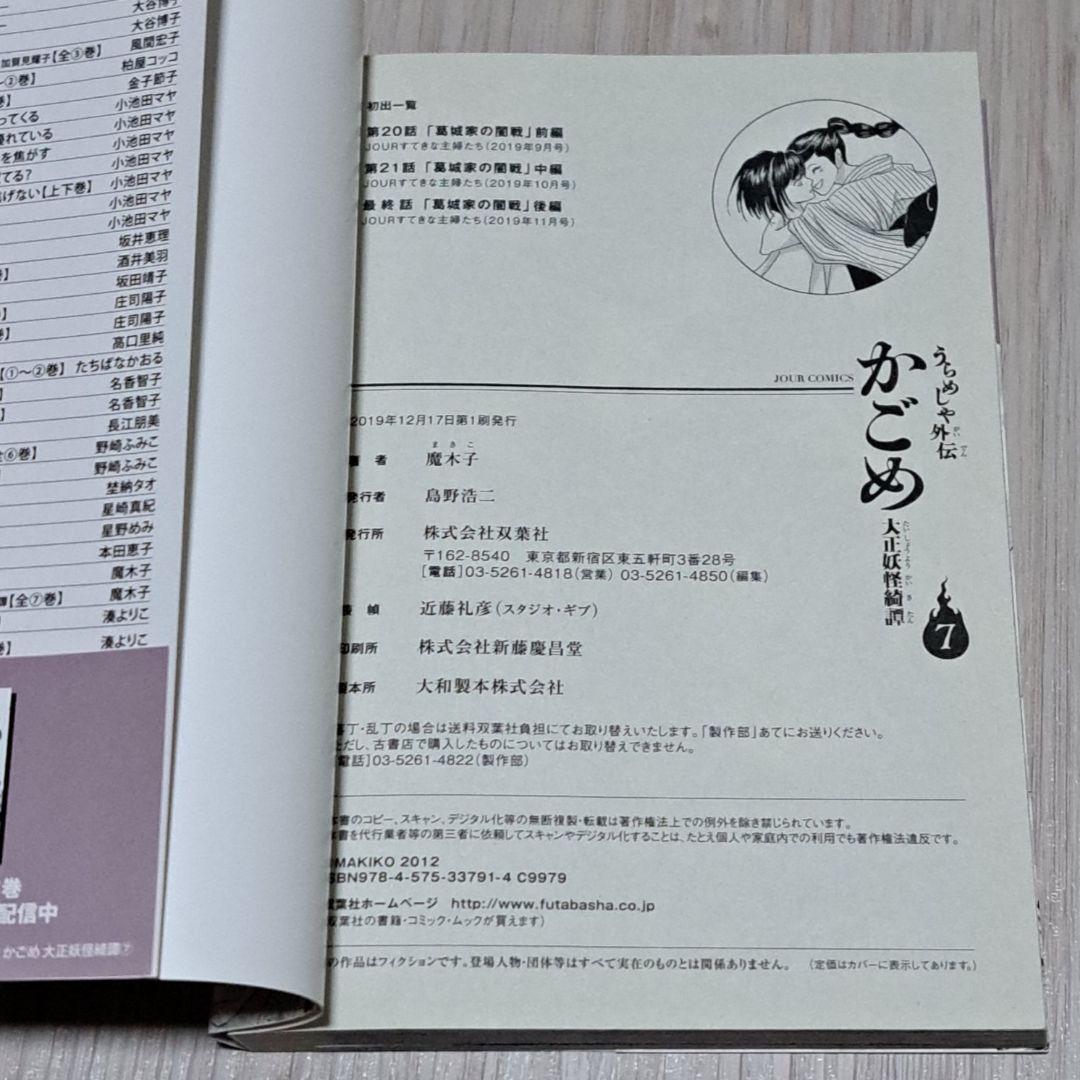 大谷博子
大谷博子
風間宏子
加賀見耀子【全③巻】
柏屋コッコ
～②巻】 金子節子
巻】 小池田マヤ
ってくる 小池田マヤ
優れている 小池田マヤ
を焦がす 小池田マヤ
てる? 小池田マヤ
げない【上下巻】 小池田マヤ
小池田マヤ
坂井恵理
酒井美羽
巻】 坂田靖子
庄司陽子
巻】 庄司陽子
巻】 高口里純
【①～②巻】 たちばなかおる
名香智子
名香智子
長江朋美
全⑥巻】 野崎ふみこ
野崎ふみこ
埜納タオ
星崎真紀
星野めみ
本田恵子
魔木子
【全⑦巻】 魔木子
湊よりこ
巻】 湊よりこ
巻
配信中
かごめ 大正妖怪綺譚⑦
初出一覧
第20話 「葛城家の闇戦」前編
JOURすてきな主婦たち(2019年9月号)
第21話 「葛城家の闇戦」中編
JOURすてきな主婦たち(2019年10月号)
最終話 「葛城家の闇戦」後編
JOURすてきな主婦たち(2019年11月号)
JOUR COMICS
うらめしや外伝
がいでん
かごめ
大正妖怪綺譚
たいしょうようかいきたん
7
2019年12月17日第1刷発行
まきこ
著者 魔木子
発行者 島野浩二
発行所 株式会社双葉社
〒162-8540 東京都新宿区東五軒町3番28号
[電話]03-5261-4818(営業) 03-5261-4850(編集)
装幀 近藤礼彦(スタジオ・ギブ)
印刷所 株式会社新藤慶昌堂
製本所 大和製本株式会社
落丁・乱丁の場合は送料双葉社負担にてお取り替えいたします。「製作部」あてにお送りください。
ただし、古書店で購入したものについてはお取り替えできません。
[電話]03-5261-4822(製作部)
本書のコピー、スキャン、デジタル化等の無断複製・転載は著作権法上での例外を除き禁じられています。
本書を代行業者等の第三者に依頼してスキャンやデジタル化することは、たとえ個人や家庭内での利用でも著作権法違反です。
©MAKIKO 2012
ISBN978-4-575-33791-4 C9979
双葉社ホームページ http://www.futabasha.co.jp
(双葉社の書籍・コミック・ムックが買えます)
の作品はフィクションです。登場人物・団体等はすべて実在のものとは関係ありません。 (定価はカバーに表示してあります。)